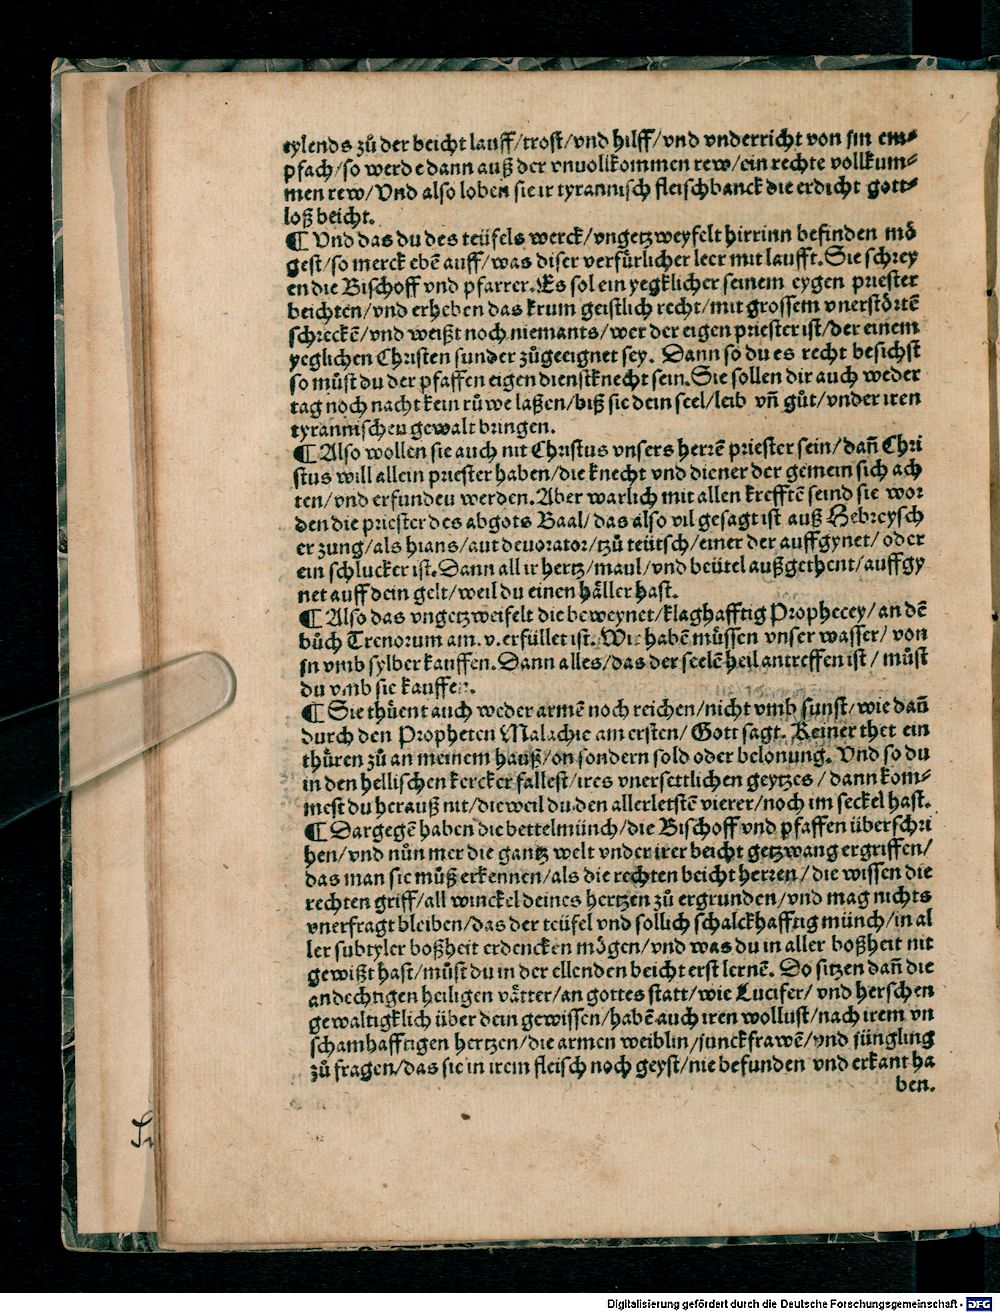 eylends zů der beicht lauff/trost/vnd hilff/vnd vnderricht von jm em⸗
pfach/so werde dann auß der vnuollkommen rew/ein rechte vollkum⸗
men rew/Vnd also loben sie ir tyrannisch fleischbanck die erdicht gott⸗
loß beicht.
¶ Vnd das du des teüfels werck/vngetzweyfelt hirrinn befinden mö
gest/so merck ebē auff/was diser verfürlicher leer mit laufft. Sie schrey
en die Bischoff vnd pfarrer. Es sol ein yegklicher seinem eygen priester
beichten/vnd erheben das krum geistlich recht/mit grossem vnerstörtē
schreckē/vnd weißt noch niemants/wer der eigen priester ist/der einem
yeglichen Christen sunder zůgeeignet sey. Dann so du es recht besichst
so můst du der pfaffen eigen dienstknecht sein. Sie sollen dir auch weder
tag noch nacht kein růwe laßen/biß sie dein seel/leib vñ gůt/vnder iren
tyrannischen gewalt bringen.
¶ Also wollen sie auch nit Christus vnsers herrē priester sein/dañ Chri
stus will allein priester haben/die knecht vnd diener der gemein sich ach
ten/vnd erfunden werden. Aber warlich mit allen krefftē seind sie wor
den die priester des abgots Baal/das also vil gesagt ist auß Hebreysch
er zung/als hians/aut deuorator/tzů teütsch/einer der auffgynet/oder
ein schlucker ist. Dann all ir hertz/maul/vnd beütel außgethent/auffgy
net auff dein gelt/weil du einen häller hast.
¶ Also das vngetzweifelt die beweynet/klaghafftig Prophecey/an dē
bůch Trenorum am. v. erfüllet ist. Wir habē müssen vnser wasser/von
jn vmb sylber kauffen. Dann alles/das der seelē heil antreffen ist/můst
du vmb sie kauffen.
¶ Sie thüent auch weder armē noch reichen/nicht vmb sunst/wie dañ
durch den Propheten Malachie am ersten/Gott sagt. Keiner thet ein
thüren zů an meinem hauß/on sondern sold oder belonung. Vnd so du
in den hellischen kercker fallest/ires vnersettlichen geytzes/dann kom⸗
mest du herauß nit/dieweil du den allerletstē vierer/noch im seckel hast.
¶ Dargegē haben die bettelmünch/die Bischoff vnd pfaffen überschri
hen/vnd nůn mer die gantz welt vnder irer beicht getzwang ergriffen/
das man sie můß erkennen/als die rechten beicht herren/die wissen die
rechten griff/all winckel deines hertzen zů ergrunden/vnd mag nichts
vnerfragt bleiben/das der teüfel vnd sollich schalckhafftig münch/in al
ler subtyler boßheit erdencken mögen/vnd was du in aller boßheit nit
gewißt hast/můst du in der ellenden beicht erst lernē. Do sitzen dañ die
andechtigen heiligen vätter/an gottes statt/wie Lucifer/vnd herschen
gewaltigklich über dein gewissen/habē auch iren wollust/nach irem vn
schamhafftigen hertzen/die armen weiblin/junckfrawē/vnd jüngling
zů fragen/das sie in irem fleisch noch geyst/nie befunden vnd erkant ha
ben.
Digitalisierung gefördert durch die Deutsche Forschungsgemeinschaft - DFG